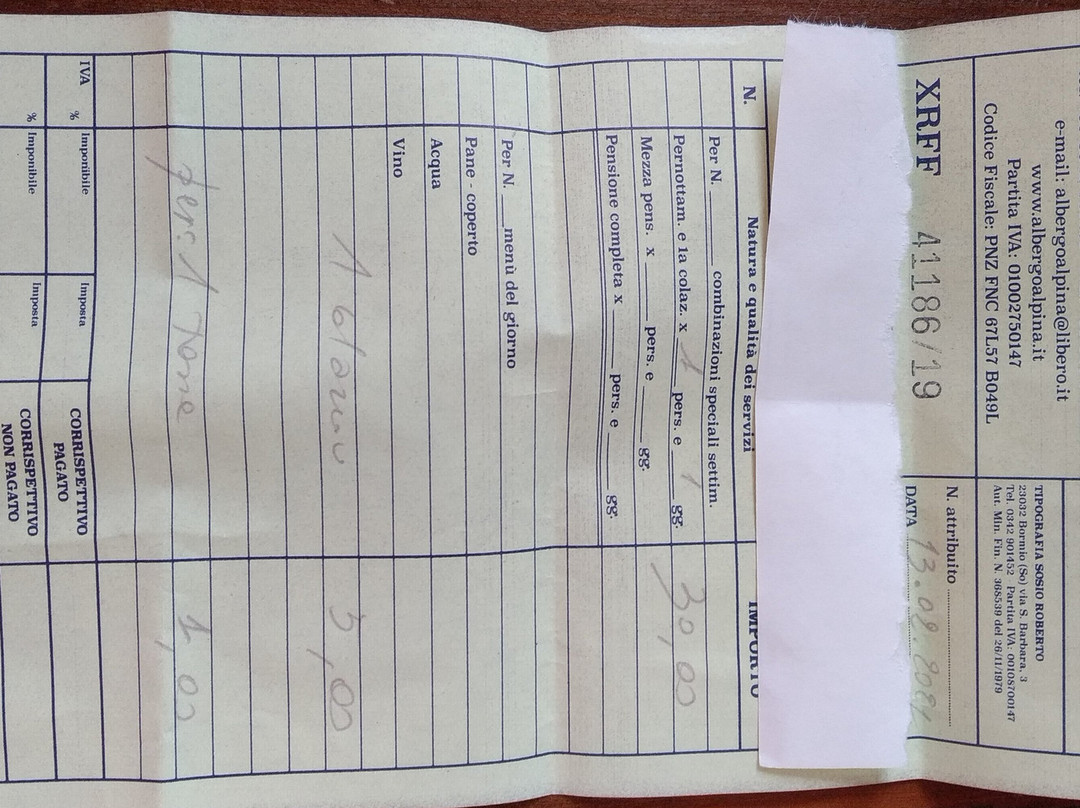 e-mail: albergoalpina@libero.it
www.albergoalpina.it
Partita IVA: 01002750147
Codice Fiscale: PNZ FNC 67L57 B049L
TIPOGRAFIA SOSIO ROBERTO
23032 Bormio (So) via S. Barbara, 3
Tel. 0342 901452 Partita IVA: 00108700147
Aut. Min. Fin. N. 368539 del 26/11/1979
XRFF 41186/19
N. attribuito
DATA 13.08.2021
N. Natura e qualità dei servizi IMPORTO
Per N. combinazioni speciali settim.
Pernottam. e 1a colaz. x 1 pers. e 1 gg. 30,00
Mezza pens. x pers. e gg.
Pensione completa x pers. e gg.
Per N. menù del giorno
Pane - coperto
Acqua
Vino
1 5,00
1 1,00
IVA % Imponibile Imposta CORRISPETTIVO PAGATO
% Imponibile Imposta CORRISPETTIVO NON PAGATO